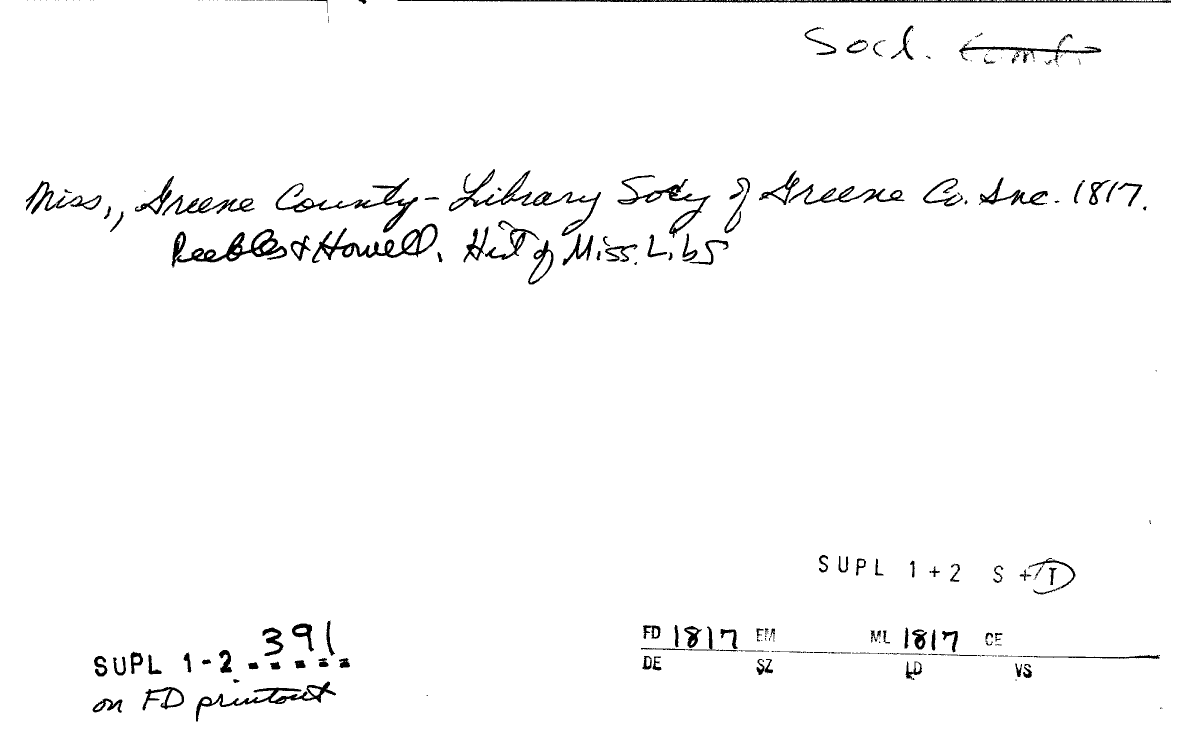 Socl.
Miss,, Greene County - Library Socy of Greene Co. Inc. 1817.
Peebles & Howell. Hist of Miss. Libs
SUPL 1+2 S + T
SUPL 1-2 391
on FD printout
FD 1817 EM ML 1817 CE
DE SZ LD VS